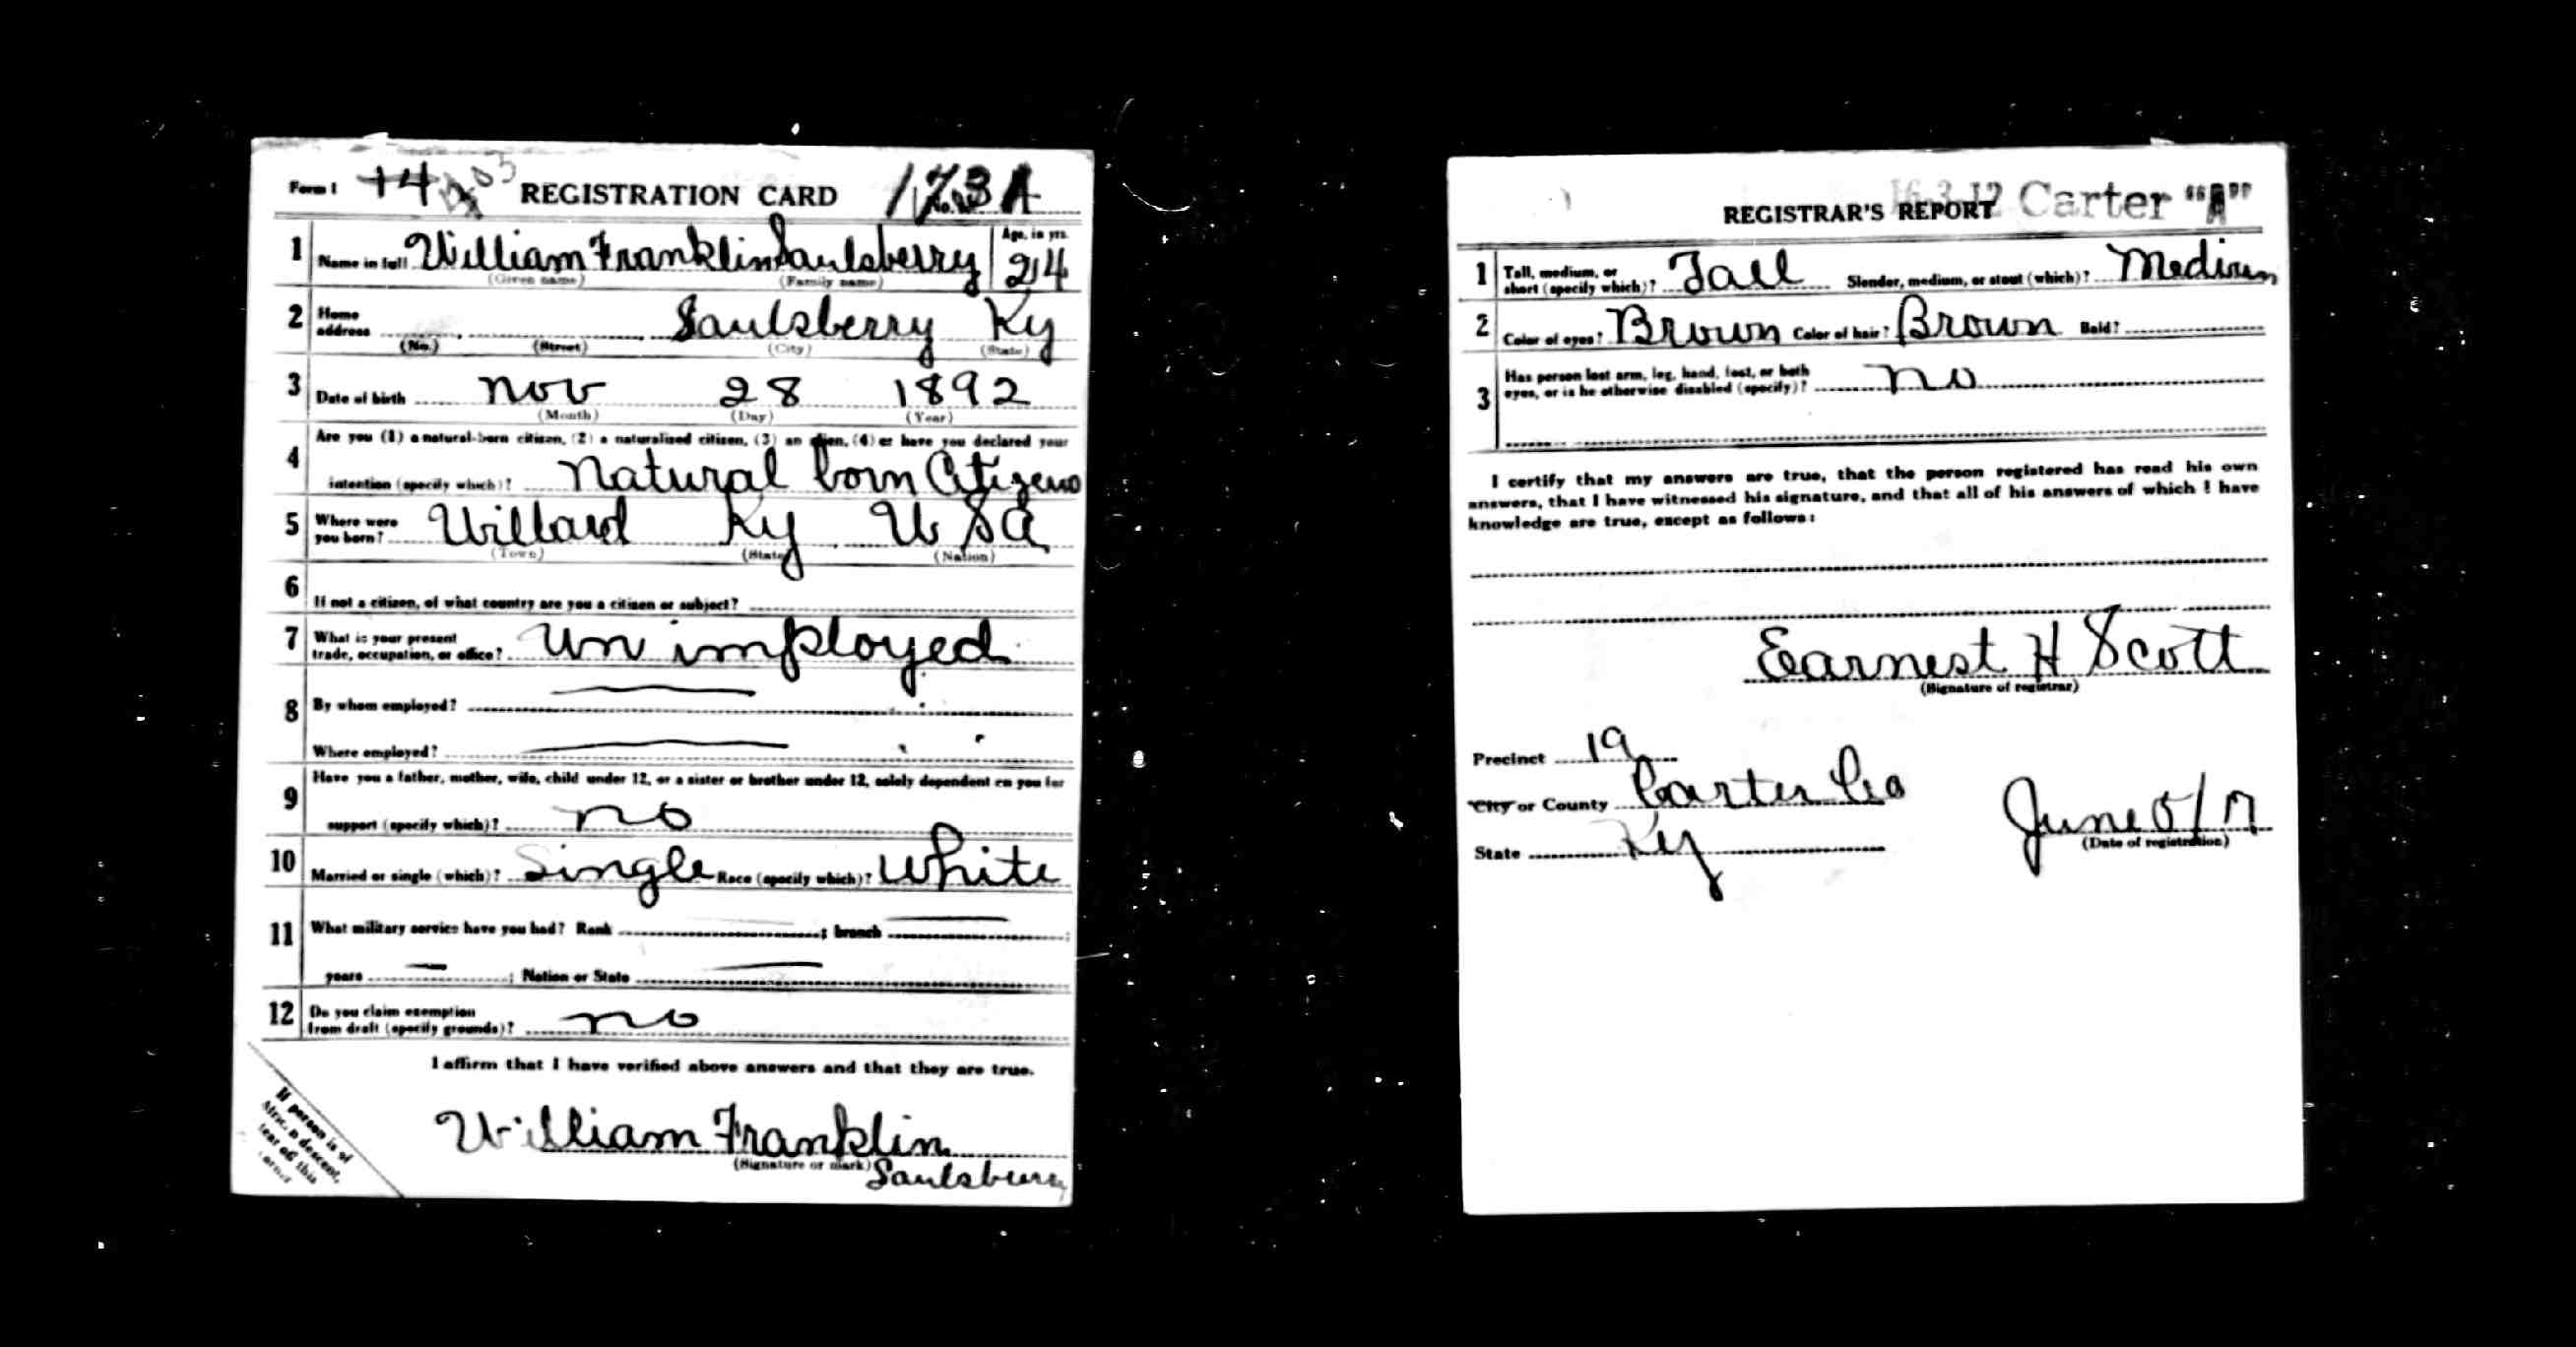 Form 1 REGISTRATION CARD No.
1 Name in full William Franklin Saulsberry Age, in yrs. 24
(Given name) (Family name)
2 Home address Saulsberry Ky
(No.) (Street) (City) (State)
3 Date of birth Nov 28 1892
(Month) (Day) (Year)
4 Are you (1) a natural-born citizen, (2) a naturalized citizen, (3) an alien, (4) or have you declared your
intention (specify which)? Natural born Citizen
5 Where were you born? Willard Ky U S A
(Town) (State) (Nation)
6 If not a citizen, of what country are you a citizen or subject?
7 What is your present trade, occupation, or office? Un imployed
8 By whom employed?
Where employed?
9 Have you a father, mother, wife, child under 12, or a sister or brother under 12, solely dependent on you for
support (specify which)? no
10 Married or single (which)? Single Race (specify which)? White
11 What military service have you had? Rank ; branch ;
years ; Nation or State
12 Do you claim exemption from draft (specify grounds)? no
I affirm that I have verified above answers and that they are true.
William Franklin
(Signature or mark) Saulsburry
If person is of
African descent,
tear off this
corner
16-3-12 Carter "A"
REGISTRAR'S REPORT
1 Tall, medium, or short (specify which)? Tall Slender, medium, or stout (which)? Medium
2 Color of eyes? Brown Color of hair? Brown Bald?
3 Has person lost arm, leg, hand, foot, or both
eyes, or is he otherwise disabled (specify)? no
I certify that my answers are true, that the person registered has read his own
answers, that I have witnessed his signature, and that all of his answers of which I have
knowledge are true, except as follows:
Earnest H Scott
(Signature of registrar)
Precinct 19
City or County Carter Co
State Ky June 5/17
(Date of registration)